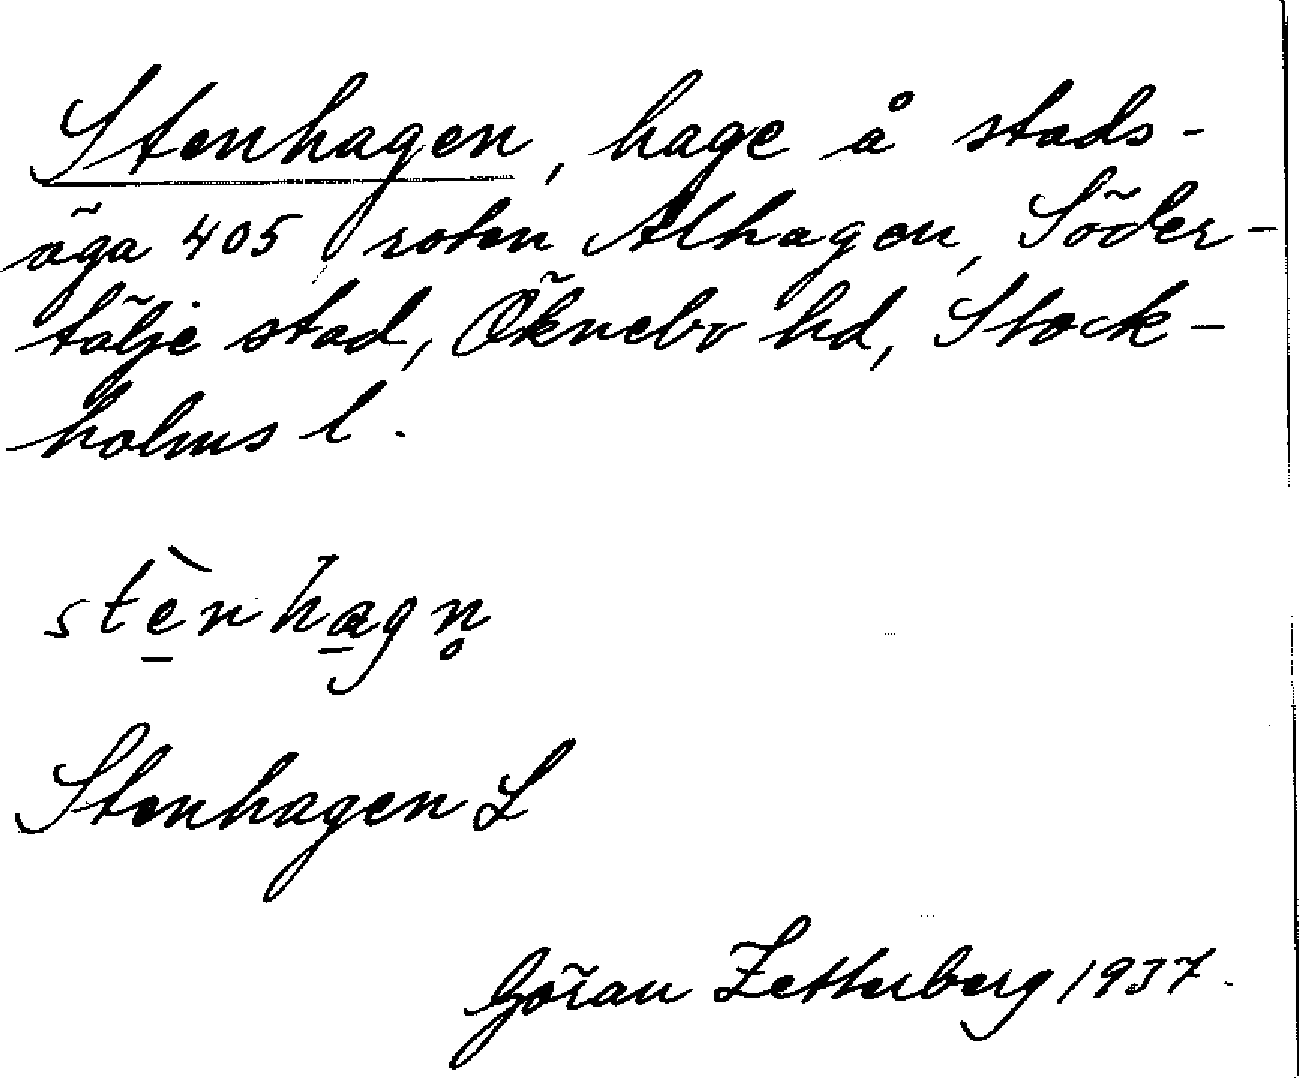 Stenhagen, hage å stads-
äga 405 roten Alhagen, Söder-
tälje stad, Öknebo hd, Stock-
holms l.
stènhagn̥
Stenhagen L
Göran Zetterberg 1937.